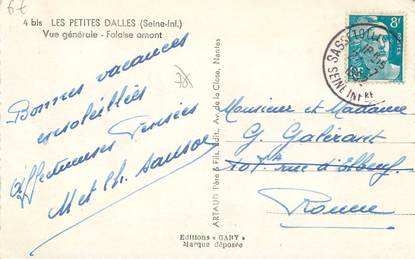 6€
4 bis LES PETITES DALLES (Seine-Inf.)
Vue générale - Falaise amont
Bonnes vacances
ensoleillées
Affectueuses Pensées
M et Ch.
ARTAUD Père & Fils, Édit., Av. de la Close, Nantes
SASSETOT
SEINE INFRE
8F
POSTES
Monsieur et Madame
G. Galérant
107 rue d'Elbeuf
Rouen
Editions "GABY"
Marque déposée